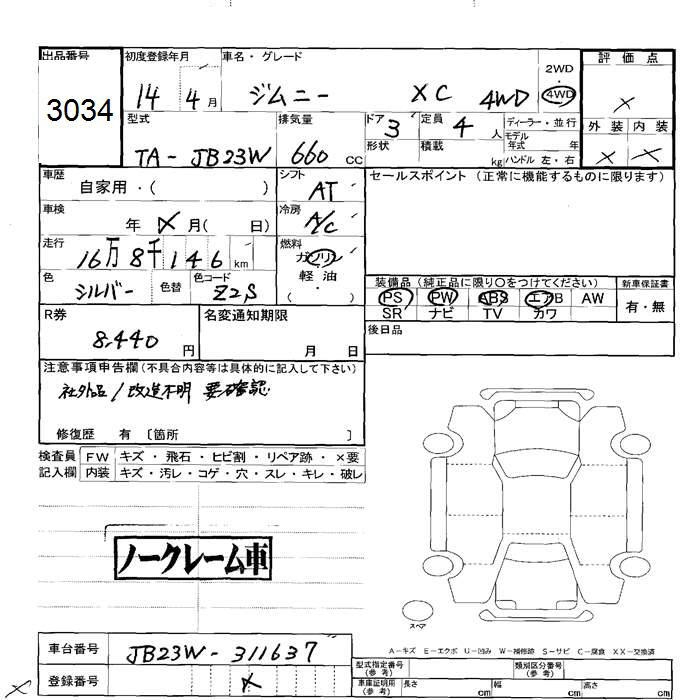 出品番号 初度登録年月 車名・グレード 評価点
3034 14 4月 ジムニー XC 4WD 2WD・4WD ×
型式 排気量 ドア 3 定員 4人 ディーラー・並行 外装 内装
TA-JB23W 660 CC 形状 積載 kg モデル年式 年 ハンドル 左・右 × ×
車歴 シフト セールスポイント (正常に機能するものに限ります)
自家用・( ) AT
車検 年 × 月( 日) 冷房 A/C
走行 16万8千146km 燃料 ガソリン
色 シルバー 色替 色コード Z2S 軽油 ・( )
装備品 (純正品に限り○をつけてください) 新車保証書
PS PW ABS エアB AW 有・無
SR ナビ TV カワ
R券 8,440円 名変通知期限 月 日 後日品
注意事項申告欄 (不具合内容等は具体的に記入して下さい)
社外品/改造不明 要確認
修復歴 有 〔箇所 〕
検査員 FW キズ・飛石・ヒビ割・リペア跡・×要
記入欄 内装 キズ・汚レ・コゲ・穴・スレ・キレ・破レ
ノークレーム車
スペア
A-キズ E-エクボ U-凹み W-補修跡 S-サビ C-腐食 XX-交換済
車台番号 JB23W-311637
登録番号 ×
型式指定番号 (参考) 類別区分番号 (参考)
車庫証明用 (参考) 長さ cm 幅 cm 高さ cm
×